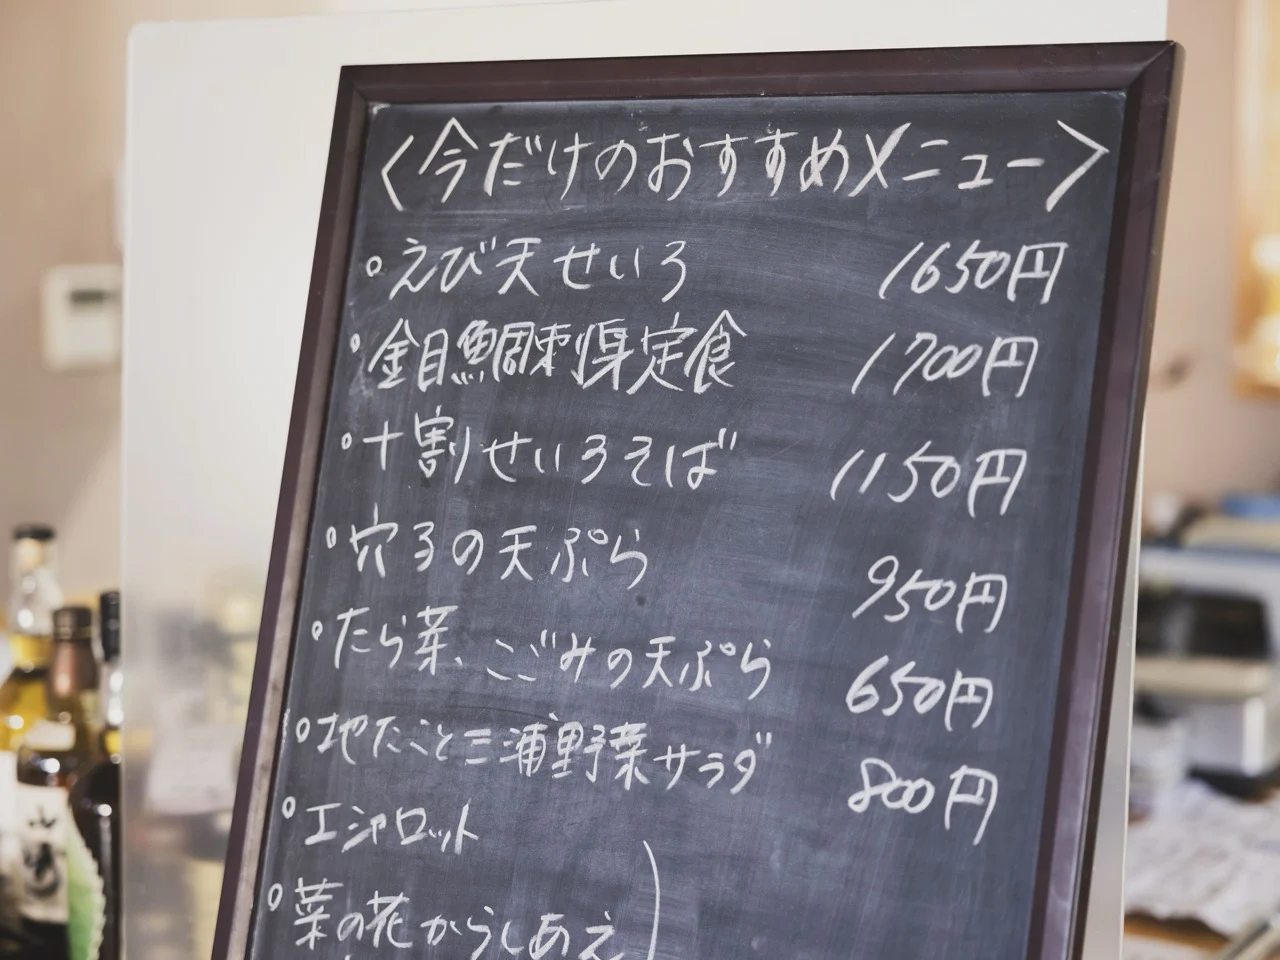 <今だけのおすすめメニュー>
○えび天せいろ 1650円
○金目鯛刺身定食 1700円
○十割せいろそば 1150円
○穴子の天ぷら 950円
○たら菜、こごみの天ぷら 650円
○地たこと三浦野菜サラダ 800円
○エシャロット
○菜の花からしあえ